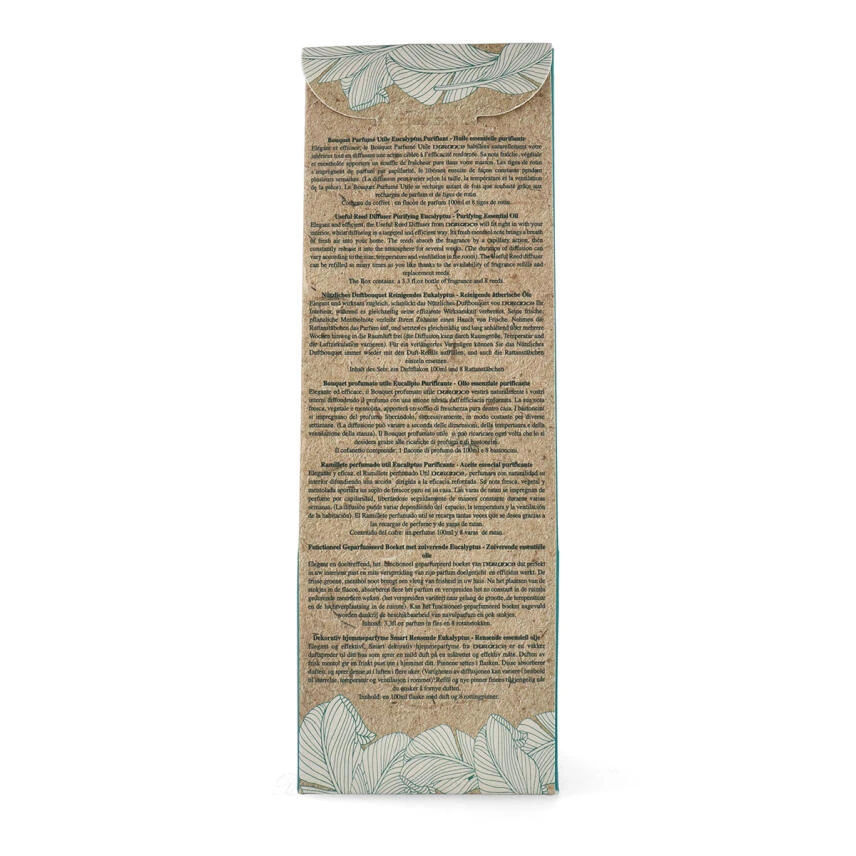 Bouquet Parfumé Utile Eucalyptus Purifiant - Huile essentielle purifiante
Elégant et efficace, le Bouquet Parfumé Utile DURANCE habillera naturellement votre
intérieur tout en diffusant une action ciblée à l'efficacité renforcée. Sa note fraîche, végétale
et mentholée apportera un souffle de fraîcheur pure dans votre maison. Les tiges de rotin
s'imprègnent de parfum par capillarité, le libérant ensuite de façon constante pendant
plusieurs semaines. (La diffusion peut varier selon la taille, la température et la ventilation
de la pièce). Le Bouquet Parfumé Utile se recharge autant de fois que souhaité grâce aux
recharges de parfum et de tiges de rotin.
Contenu du coffret : un flacon de parfum 100ml et 8 tiges de rotin.
Useful Reed Diffuser Purifying Eucalyptus - Purifying Essential Oil
Elegant and efficient, the Useful Reed Diffuser from DURANCE will fit right in with your
interior, whist diffusing in a targeted and efficient way. Its fresh menthol note brings a breath
of fresh air into your home. The reeds absorb the fragrance by a capillary action, then
constantly release it into the atmosphere for several weeks. (The duration of diffusion can
vary according to the size, temperature and ventilation in the room). The Useful Reed diffuser
can be refilled as many times as you like thanks to the availability of fragrance refills and
replacement reeds.
The Box contains: a 3.3 fl.oz bottle of fragrance and 8 reeds.
Nützliches Duftbouquet Reinigendes Eukalyptus - Reinigende ätherische Öle
Elegant und wirksam zugleich, schmückt das Nützliches Duftbouquet von DURANCE Ihr
Interieur, während es gleichzeitig seine effiziente Wirksamkeit verbreitet. Seine frische,
pflanzliche Mentholnote verleiht Ihrem Zuhause einen Hauch von Frische. Nehmen die
Rattanstäbchen das Parfum auf, und setzen es gleichmäßig und lang anhaltend über mehrere
Wochen hinweg in die Raumluft frei (die Diffusion kann durch Raumgröße, Temperatur und
die Luftzirkulation variieren). Für ein verlängertes Vergnügen können Sie das Nützliches
Duftbouquet immer wieder mit den Duft-Refills auffüllen, und auch die Rattanstäbchen
einzeln ersetzen.
Inhalt des Sets: ein Duftflakon 100ml und 8 Rattanstäbchen
Bouquet profumato utile Eucalipto Purificante - Olio essenziale purificante
Elegante ed efficace, il Bouquet profumato utile DURANCE vestirà naturalmente i vostri
interni diffondendo il profumo con una azione mirata dall'efficacia rinforzata. La sua nota
fresca, vegetale e mentolata, apporterà un soffio di freschezza pura dentro casa. I bastoncini
si impregnano del profumo liberandolo, successivamente, in modo costante per diverse
settimane. (La diffusione può variare a seconda delle dimensioni, della temperatura e della
ventilazione della stanza). Il Bouquet profumato utile si può ricaricare ogni volta che lo si
desidera grazie alle ricariche di profumo e di bastoncini.
Il cofanetto comprende: 1 flacone di profumo da 100ml e 8 bastoncini.
Ramillete perfumado util Eucaliptus Purificante - Aceite esencial purificante
Elegante y eficaz, el Ramillete perfumado Util DURANCE, perfumara con naturalidad su
interior difundiendo una acción dirigida a la eficacia reforzada. Su nota fresca, vegetal y
mentolada aportará un soplo de frescor puro en su casa. Las varas de ratan se impregnan de
perfume por capilaridad, liberándose seguidamente de manera constante durante varias
semanas. (La difusión puede variar dependiendo del espacio, la temperatura y la ventilación
de la habitación). El Ramillete perfumado util se recarga tantas veces que se desea gracias a
las recargas de perfume y de varas de ratan.
Contenido del cofre: un perfume 100ml y 8 varas de ratan.
Functioneel Geparfumeerd Boeket met zuiverende Eucalyptus - Zuiverende essentiële
olie
Elegant en doeltreffend, het functioneel geparfumeerd boeket van DURANCE dat perfekt
in uw interieur past en mits verspreiding van zijn parfum doelgericht en efficiënt werkt. De
frisse groene, menthol noot brengt een vleug van frisheid in uw huis. Na het plaatsen van de
stokjes in de flacon, absorberen deze het parfum en verspreiden het zo constant in de ruimte
gedurende meerdere weken. (het verspreiden varieert naar gelang de grootte, de temperatuur
en de luchtverplaatsing in de ruimte). Kan het functioneel geparfumeerd boeket aangevuld
worden dankzij de beschikbaarheid van navulparfum en ook stokjes.
Inhoud: 3,3fl.oz parfum in fles en 8 rotanstokken.
Dekorativ hjemmeparfyme Smart Rensende Eukalyptus - Rensende essensiell olje
Elegant og effektivt, Smart dekorativ hjemmeparfyme fra DURANCE er en vakker
duftspreder til ditt hus som sprer en mild duft på en målrettet og effektiv måte. Duften av
frisk mentol gir en friskt pust inn i hjemmet ditt. Pinnene settes i flasken. Disse absorberer
duften, og sprer denne ut i luften i flere uker. (Varigheten av diffusjonen kan variere i henhold
til størrelse, temperatur og ventilasjon i rommet). Refill og nye pinner finnes tilgjengelig når
du ønsker å fornye duften.
Innhold: en 100ml flaske med duft og 8 rottingpinner.